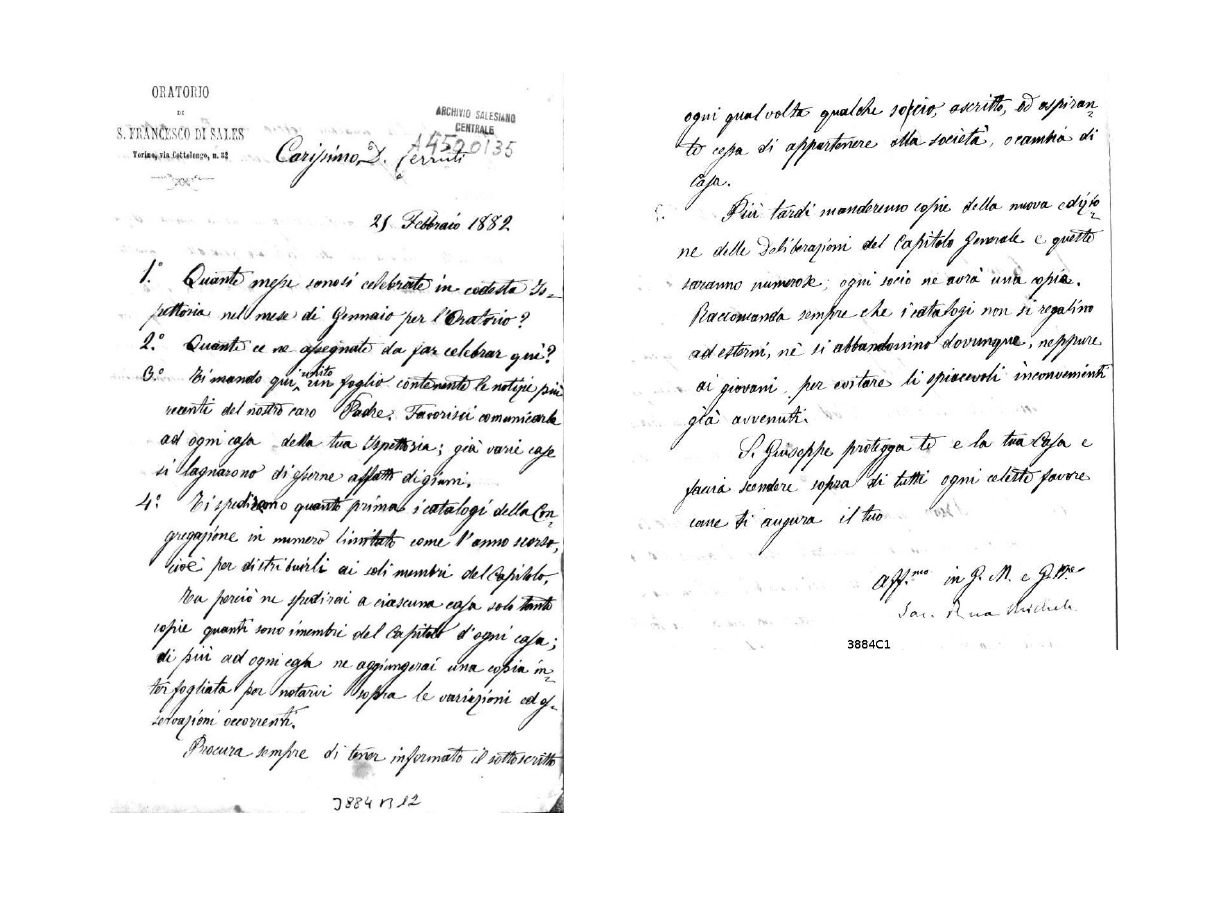 ORATORIO
DI
S. FRANCESCO DI SALES
Torino, via Cottolengo, n. 32
ARCHIVIO SALESIANO
CENTRALE
A4520135
Carissimo D. Cerruti
21 Febbraio 1882
1.° Quante messe sonosi celebrate in codesta Is-
pettoria nel mese di Gennaio per l'Oratorio?
2.° Quante ce ne assegnate da far celebrar qui?
3.° Ti mando qui unito un foglio contenente le notizie più
recenti del nostro caro Padre. Favorisci comunicarle
ad ogni casa della tua Ispettoria; già varie case
si lagnarono di esserne affatto digiuni.
4.° Ti spediremo quanto prima i catalogi della Con-
gregazione in numero limitato come l'anno scorso,
cioè per distribuirli ai soli membri del Capitolo.
Tu perciò ne spedirai a ciascuna casa solo tante
copie quanti sono i membri del Capitolo d'ogni casa;
di più ad ogni casa ne aggiungerai una copia in-
terfogliata per notarvi sopra le variazioni ed os-
servazioni occorrenti.
Procura sempre di tener informato il sottoscritto
J884 B 12
ogni qual volta qualche socio, ascritto, od aspiran-
te cessa di appartenere alla società, o cambia di
casa.
Più tardi manderemo copie della nuova edizio-
ne delle Deliberazioni del Capitolo Generale e queste
saranno numerose; ogni socio ne avrà una copia.
Raccomanda sempre che i catalogi non si regalino
ad esterni, nè si abbandonino dovunque, neppure
ai giovani, per evitare li spiacevoli inconvenienti
già avvenuti.
S. Giuseppe protegga te e la tua Casa e
faccia scendere sopra di tutti ogni celeste favore
come ti augura il tuo
Aff.mo in G. M. e G.ppe
Sac. Rua Michele
3884C1